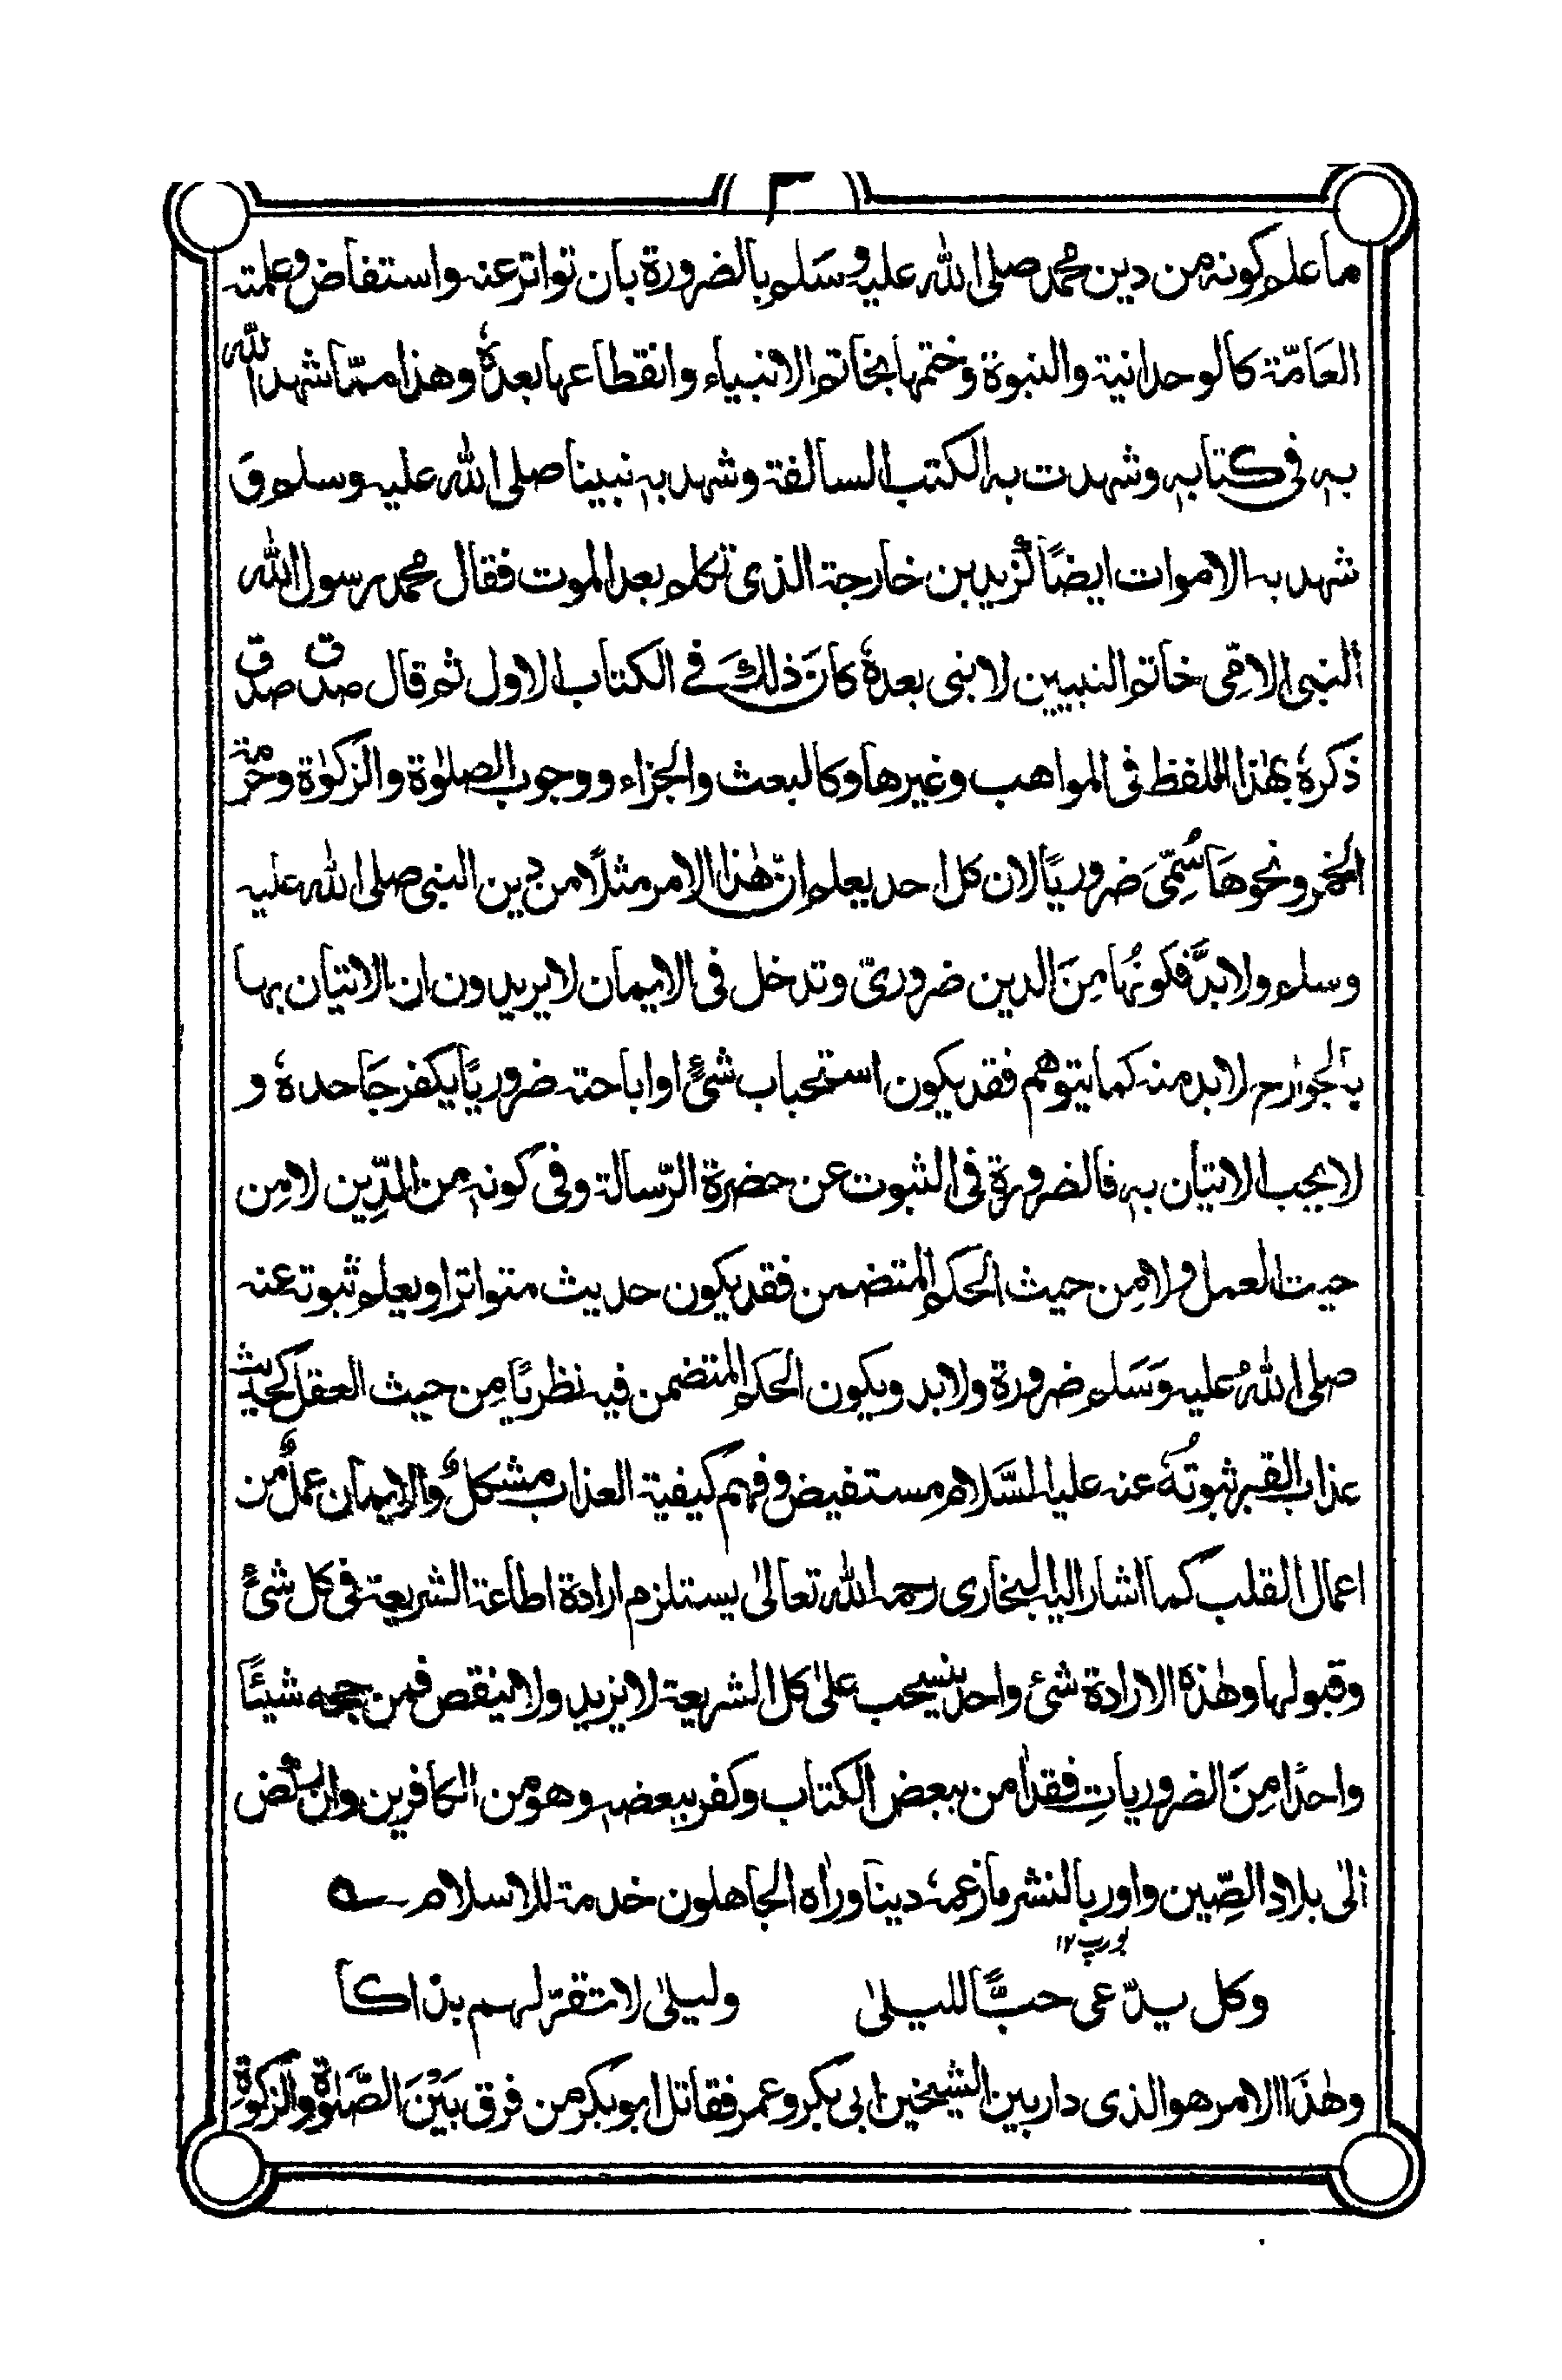 ٢
ما علم كونه من دين محمد صلى الله عليه وسَلم بالضرورة بان تواتر عنه واستفاض وعلمته
العَامّة كالوحدانية والنبوة وختمها بخاتم الانبياء وانقطاعها بعدهٗ وهذا ممّا شهد الله
بهٖ فى كتابهٖ وشهدت به الكتب السالفة وشهد بهٖ نبينا صلى الله عليه وسلم وَ
شهد به الاموات ايضًا كزيد بن خارجة الذى تكلم بعد الموت فقال محمد رسول الله
النبى الامّى خاتم النبيين لا نبى بعدهٗ كانَ ذلكَ فے الكتاب الاول ثم قال صدق صدق
ذكرهٗ بهٰذا اللفظ فى المواهب وغيرها وكالبعث والجزاء ووجوب الصلوٰة والزكوٰة وحرمة
الخمر ونحوهَا سُمِّىَ ضروريًا لان كل احد يعلم انّ هٰذا الامر مثلًا من دين النبى صلى الله عليه
وسلم ولا بدَّ فكونُها مِنَ الدين ضرورىّ وتدخل فى الايمان لا يريدون ان الاتيان بها
بالجوارح لا بد منه كما يتوهم فقد يكون استحباب شئٍ او اباحته ضروريًا يكفر جَاحدهٗ و
لا يجب الاتيان بهٖ فالضرورة فى الثبوت عن حضرة الرّسالة وفى كونهٖ من الدِّين لا مِن
حيث العمل ولا مِن حيث الحكم المتضمن فقد يكون حديث متواترا ويعلم ثبوته عنه
صلى اللهُ عليه وَسَلم ضرورة ولا بد ويكون الحكم المتضمن فيه نظريًا مِن حيث العقل كحديث
عذاب القبر ثبوتُهَ عنه عليه السَّلام مستفيض وفهم كيفية العذاب مشكلٌ والايمان عملٌ من
اعمال القلب كما اشار اليه البخارى رحمه الله تعالىٰ يستلزم ارادة اطاعة الشريعة فى كل شئٍ
وقبولها وهٰذهٗ الارادة شئ واحد ينسحب علىٰ كل الشريعة لا يزيد ولا ينقص فمن جحه شيئًا
واحدًا مِنَ الضرورياتِ فقد اٰمن ببعض الكتاب وكفر ببعضهٖ وهو من الكافرين وان ركض
الىٰ بلاد الصِّين واوربا لنشر ما زعمهٗ دينا وراٰه الجاهلون خدمة للاسلام ؎
يورپ ١٢
وكل يدّعى حبًّا لليلىٰ وليلىٰ لا تقرّ لهم بذاكا
وهٰذَا الامر هو الذى دار بين الشيخين ابى بكر وعمر فقاتل ابو بكر من فرق بَيْنَ الصَّلوٰة والزكوٰةِ